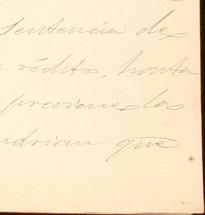 sentencia de
réditos, hasta
previenelas
udrian que